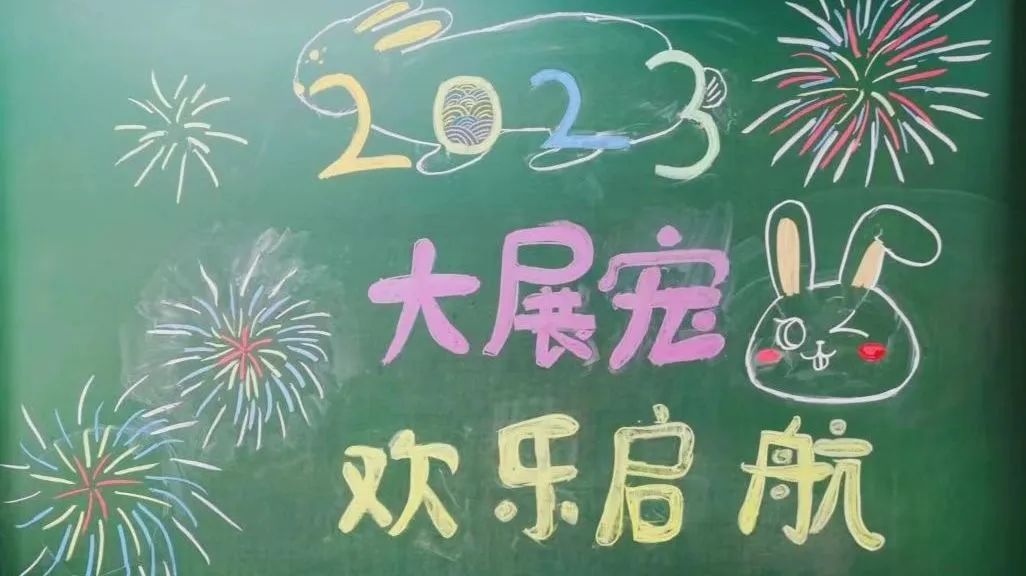 2023
大展宠
欢乐启航